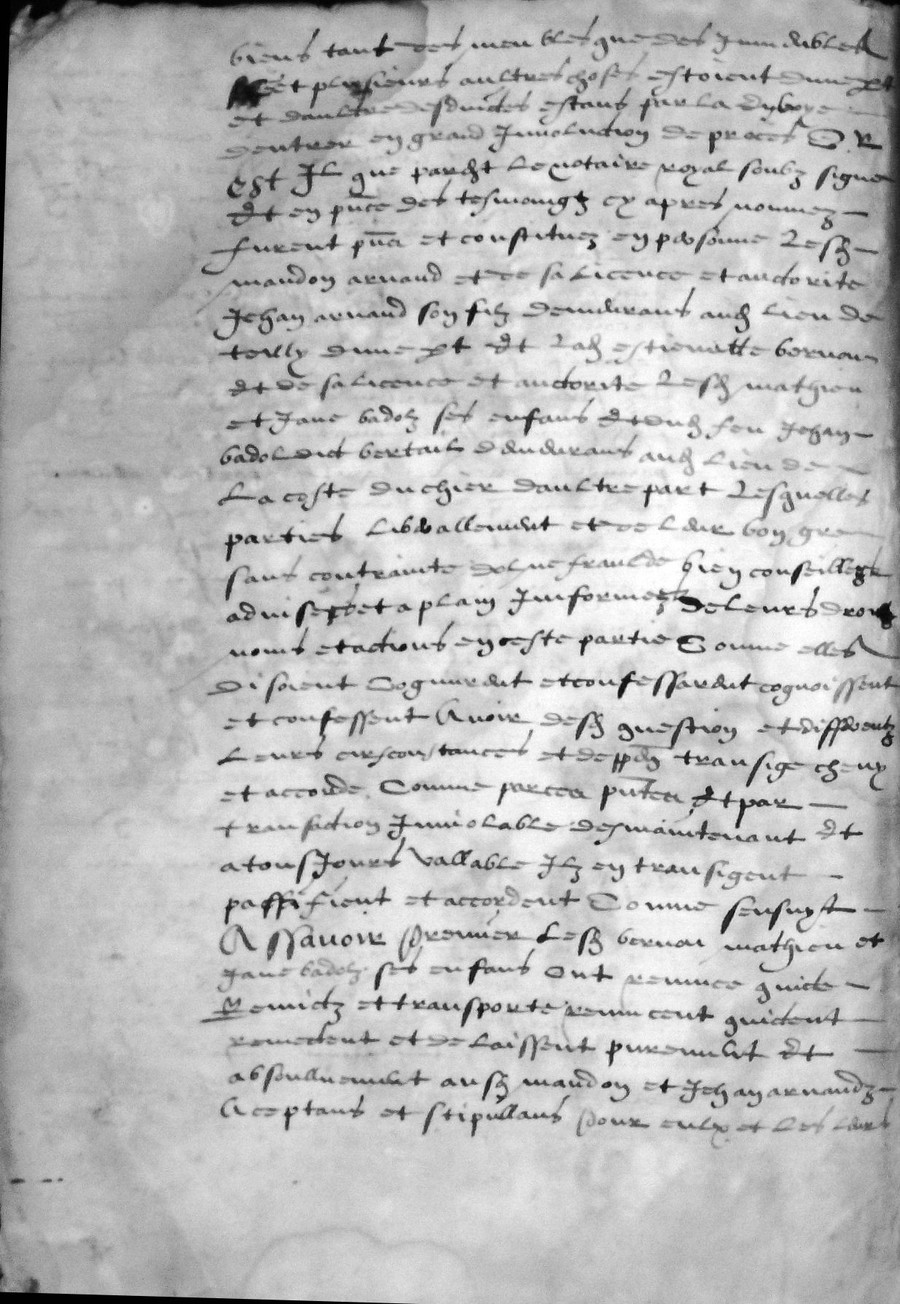 biens tant des meubles que des Immeubles
et plusieurs aultres choses estoient dune pt
et daultre desduictes estans sur la dyboye
dentrer en grand Involution de proces O R
Est Il que pardt le notaire royal soubz signe
Et en pnce des tesmoingz cy apres nommez
furent pns et constituez en personne Lesd
mandon arnaud et de sa licence et auctorite
Jehan arnaud son filz demeurans aud lieu de
teilly dune pt Et lad estienette bernou
Et de sa licence et auctorite Lesd mathieu
et Jane badolz ses enfans Et dud feu Jehan
badol dict bertail demeurans aud lieu de
La coste du chier daultre part Lesquelles
parties liberallement et de leur bon gre
sans contrainte dol ne fraulde bien conseilles
advises et a plain Informes de leurs droitz
noms et actions en ceste partie Comme elles
disoient Cogneurent et confesserent cognoissent
et confessent Avoir desd question et differentz
Leurs circonstances et deppen transige chevy
et accorde Comme par ces pntes Et par
transaction Inviolable des maintenant Et
a tousjours vallable Ilz en transigent
paffifient et accordent Comme sensuyt
Assavoir Premier Lesd bernou mathieu et
Jane badolz ses enfans Ont renunce quicte
Remictz et transporte renuncent quictent
remectent et delaissent purement Et
absoulument ausd mandon et Jehan arnaudz
Aceptans et stipullans pour eulx et les leurs